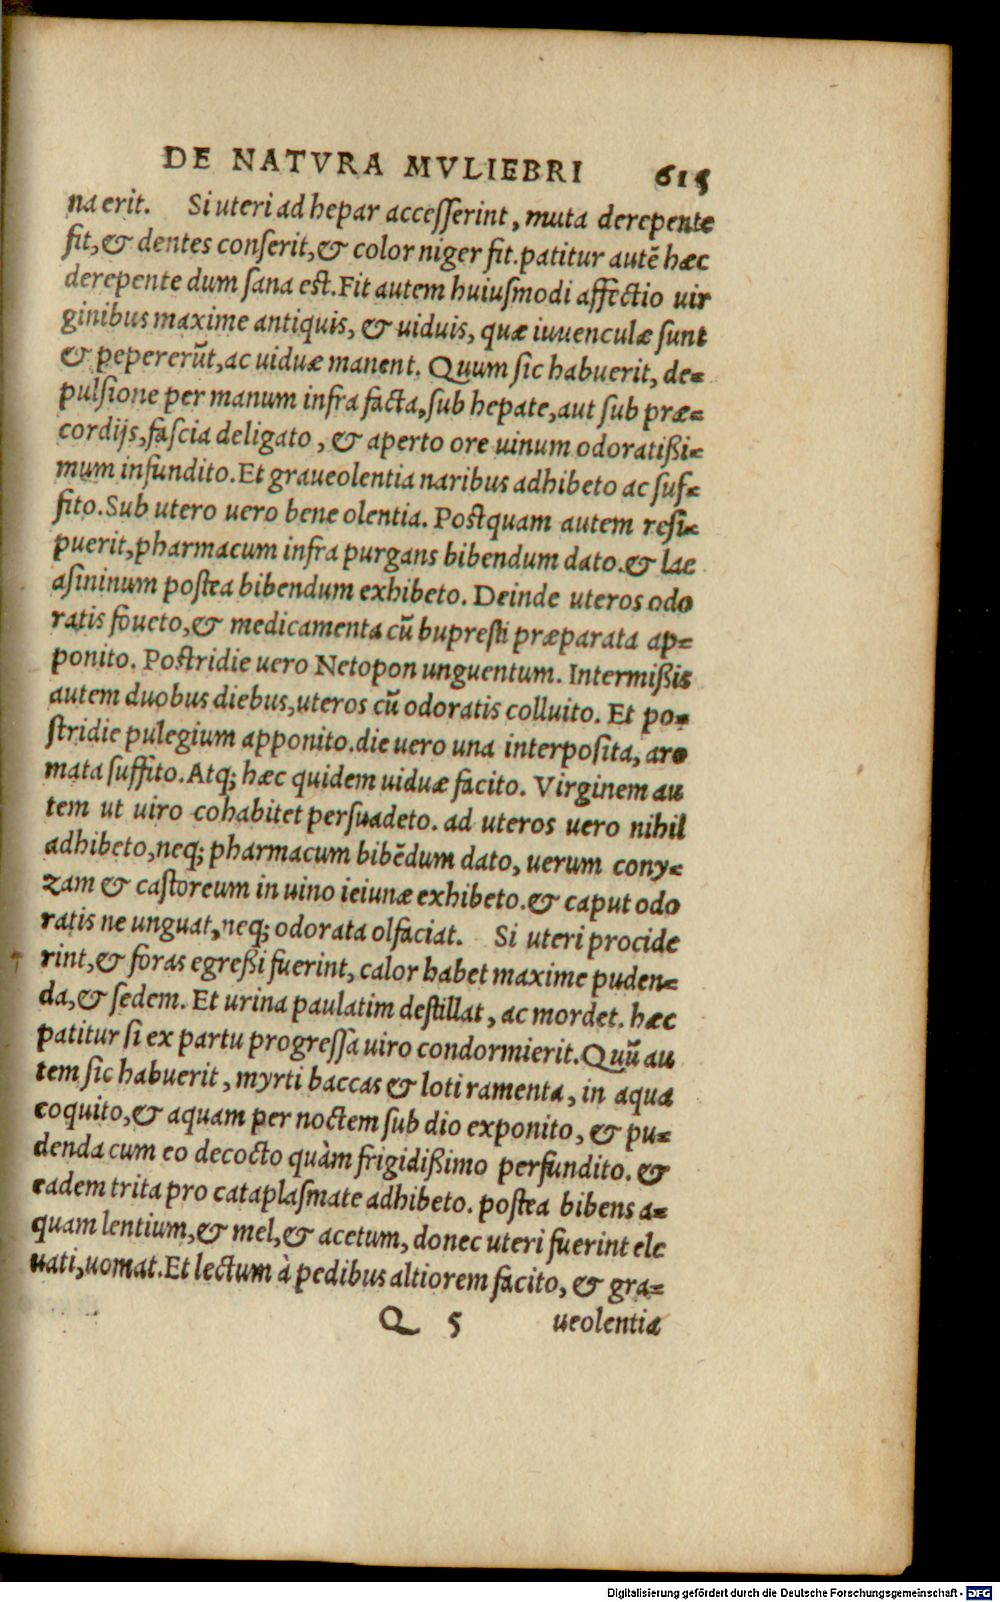 DE NATVRA MVLIEBRI 615
na erit. Si uteri ad hepar accesserint, muta derepente
fit, & dentes conserit, & color niger fit. patitur autē hæc
derepente dum sana est. Fit autem huiusmodi affectio uir
ginibus maxime antiquis, & uiduis, quæ iuuenculæ sunt
& pepererūt, ac uiduæ manent. Quum sic habuerit, de-
pulsione per manum infra facta, sub hepate, aut sub præ-
cordijs, fascia deligato, & aperto ore uinum odoratißi-
mum infundito. Et graueolentia naribus adhibeto ac suf-
fito. Sub utero uero bene olentia. Postquam autem resi-
puerit, pharmacum infra purgans bibendum dato. & lac
asininum postea bibendum exhibeto. Deinde uteros odo
ratis foueto, & medicamenta cū bupresti præparata ap-
ponito. Postridie uero Netopon unguentum. Intermißis
autem duobus diebus, uteros cū odoratis colluito. Et po-
stridie pulegium apponito. die uero una interposita, aro
mata suffito. Atq; hæc quidem uiduæ facito. Virginem au
tem ut uiro cohabitet persuadeto. ad uteros uero nihil
adhibeto, neq; pharmacum bibēdum dato, uerum cony-
zam & castoreum in uino ieiunæ exhibeto. & caput odo
ratis ne unguat, neq; odorata olfaciat. Si uteri procide
rint, & foras egreßi fuerint, calor habet maxime puden-
da, & sedem. Et urina paulatim destillat, ac mordet. hæc
patitur si ex partu progressa uiro condormierit. Quū au
tem sic habuerit, myrti baccas & loti ramenta, in aqua
coquito, & aquam per noctem sub dio exponito, & pu-
denda cum eo decocto quàm frigidißimo perfundito. &
eadem trita pro cataplasmate adhibeto. postea bibens a-
quam lentium, & mel, & acetum, donec uteri fuerint ele
uati, uomat. Et lectum à pedibus altiorem facito, & gra-
Q 5 ueolentia
Digitalisierung gefördert durch die Deutsche Forschungsgemeinschaft - DFG